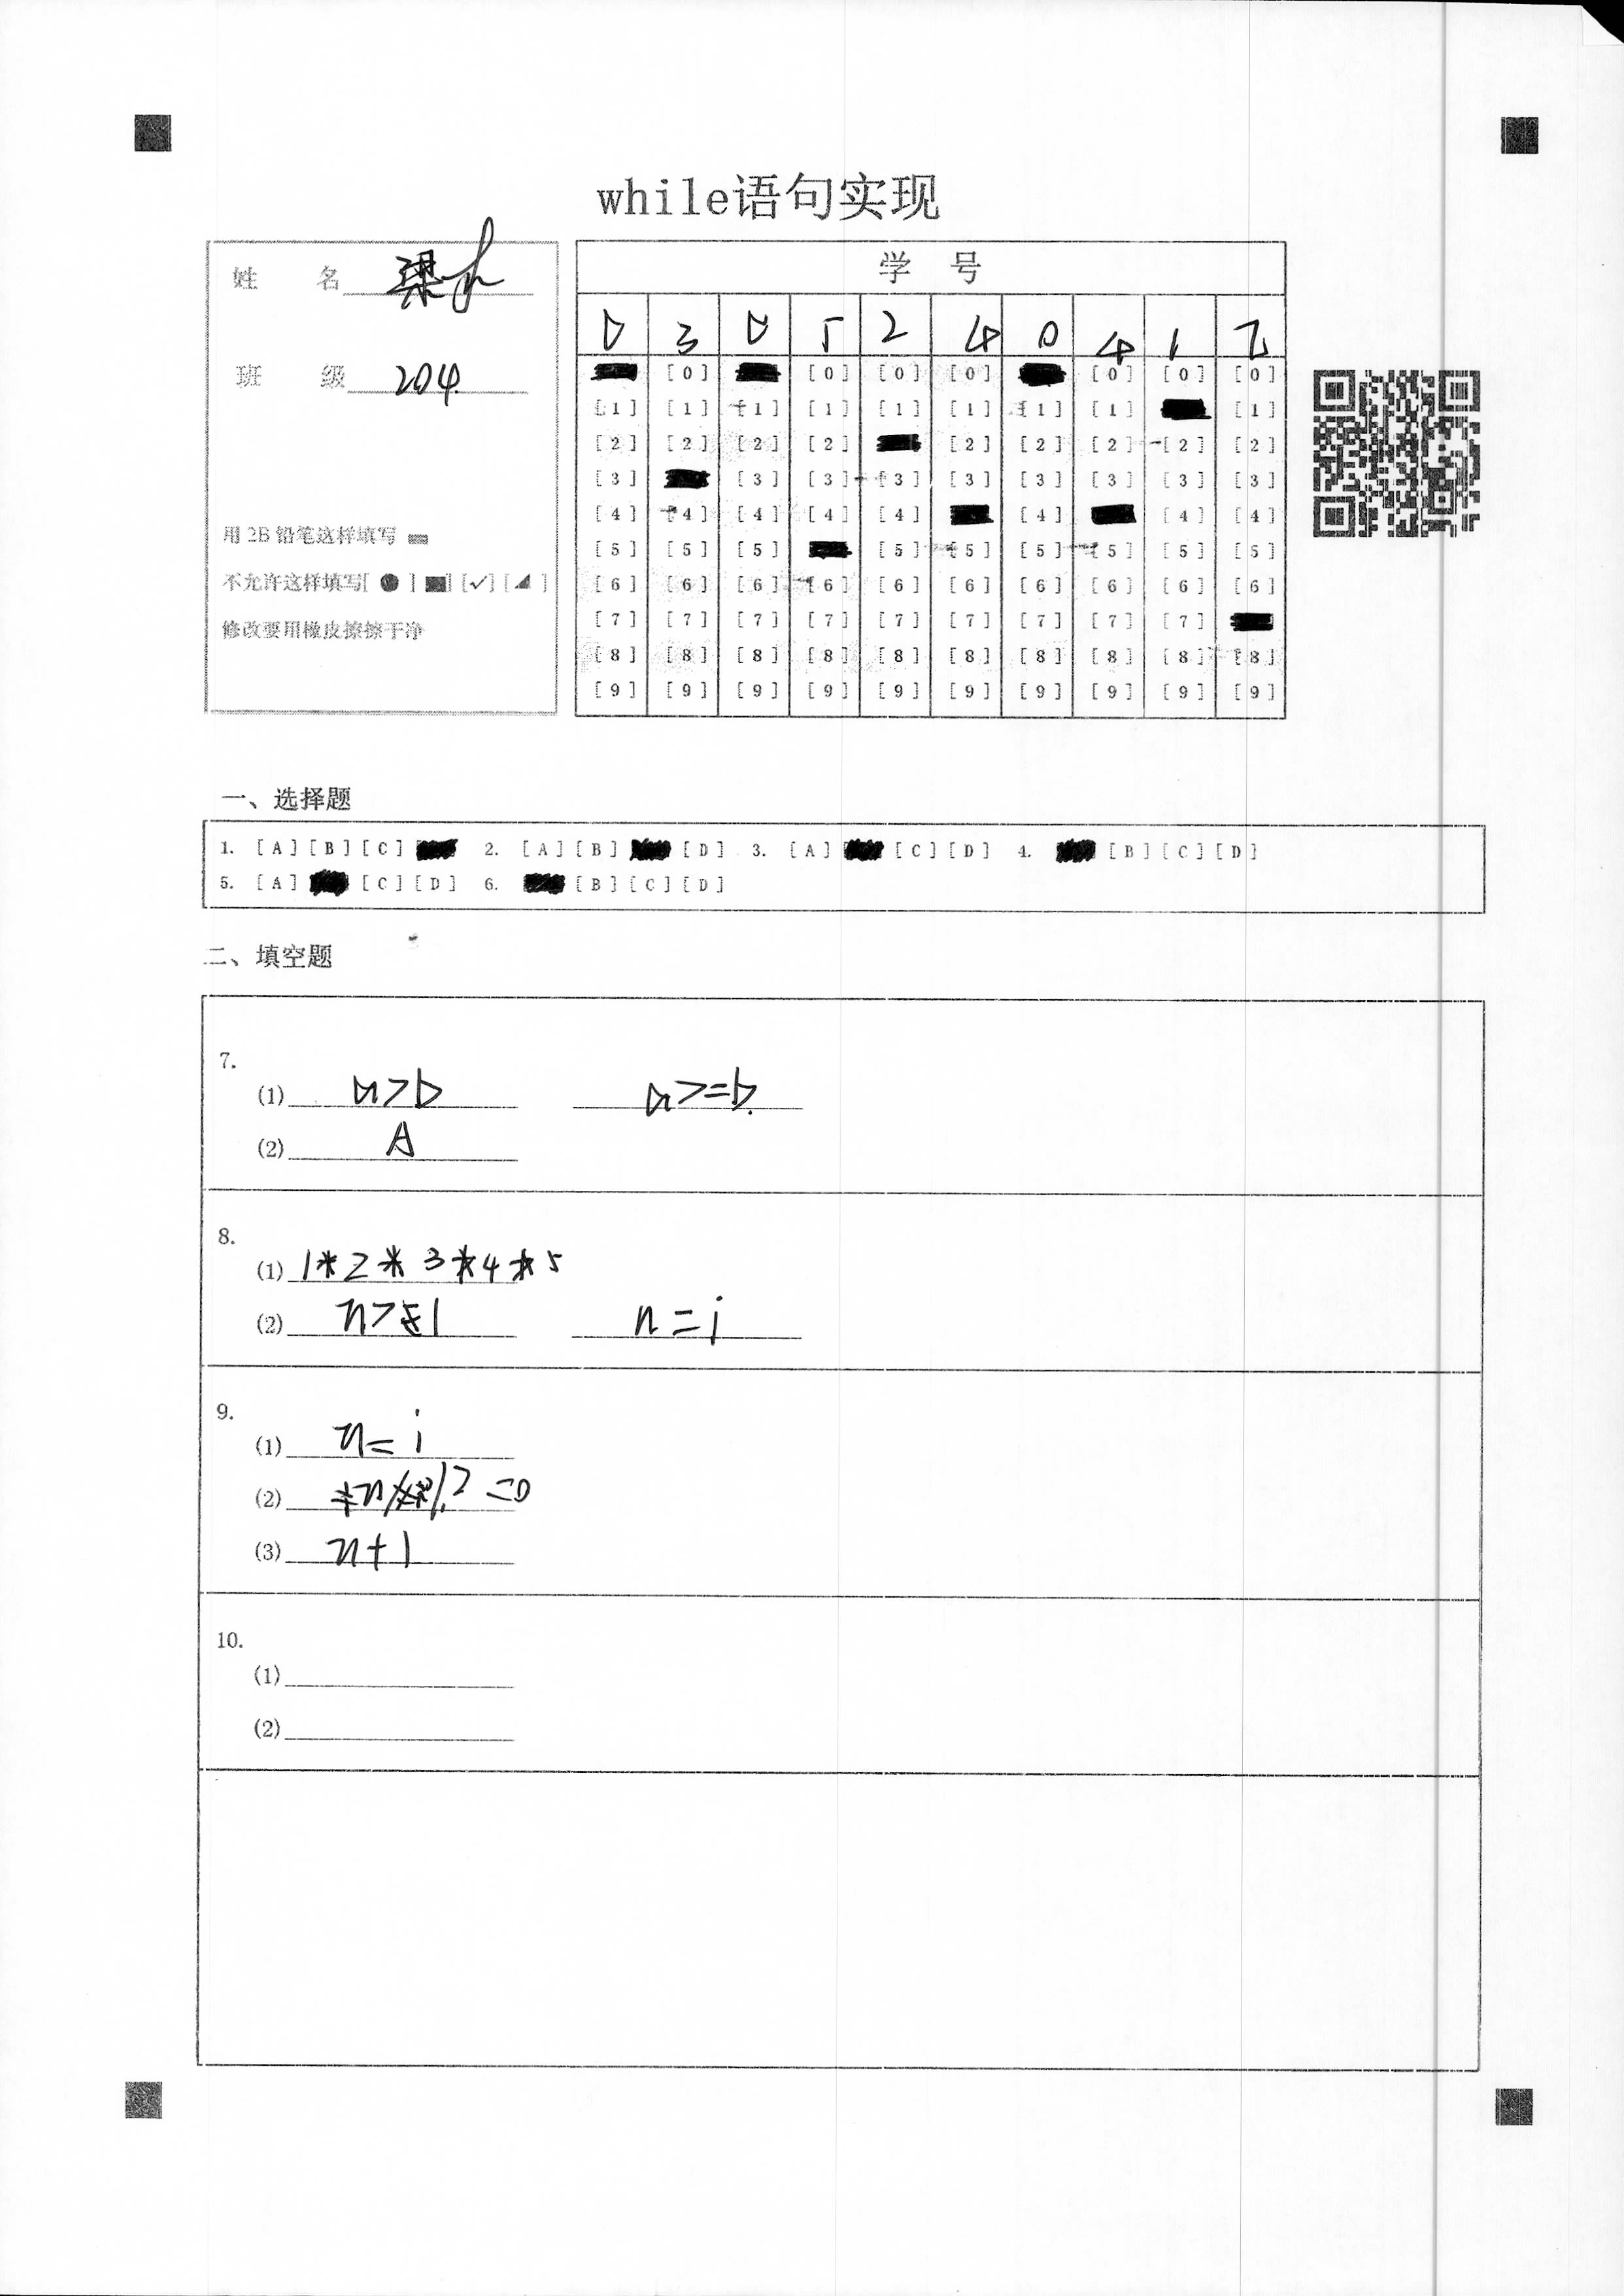 while语句实现
姓 名 梁
班 级 204
用 2B 铅笔这样填写
不允许这样填写[ ● ] [■] [✓] [◢ ]
修改要用橡皮擦擦干净
学 号
0 3 0 5 2 4 0 4 1 7
[0] [0] [0] [0] [0] [0] [0]
[1] [1] [1] [1] [1] [1] [1] [1] [1]
[2] [2] [2] [2] [2] [2] [2] [2] [2]
[3] [3] [3] [3] [3] [3] [3] [3] [3]
[4] [4] [4] [4] [4] [4] [4] [4]
[5] [5] [5] [5] [5] [5] [5] [5] [5]
[6] [6] [6] [6] [6] [6] [6] [6] [6] [6]
[7] [7] [7] [7] [7] [7] [7] [7] [7]
[8] [8] [8] [8] [8] [8] [8] [8] [8] [8]
[9] [9] [9] [9] [9] [9] [9] [9] [9] [9]
一、选择题
1. [A] [B] [C] 2. [A] [B] [D] 3. [A] [C] [D] 4. [B] [C] [D]
5. [A] [C] [D] 6. [B] [C] [D]
二、填空题
7.
(1) a>b a>=b
(2) A
8.
(1) 1*2*3*4*5
(2) n> 1 n=i
9.
(1) n=i
(2) n %2 =0
(3) n+1
10.
(1)
(2)